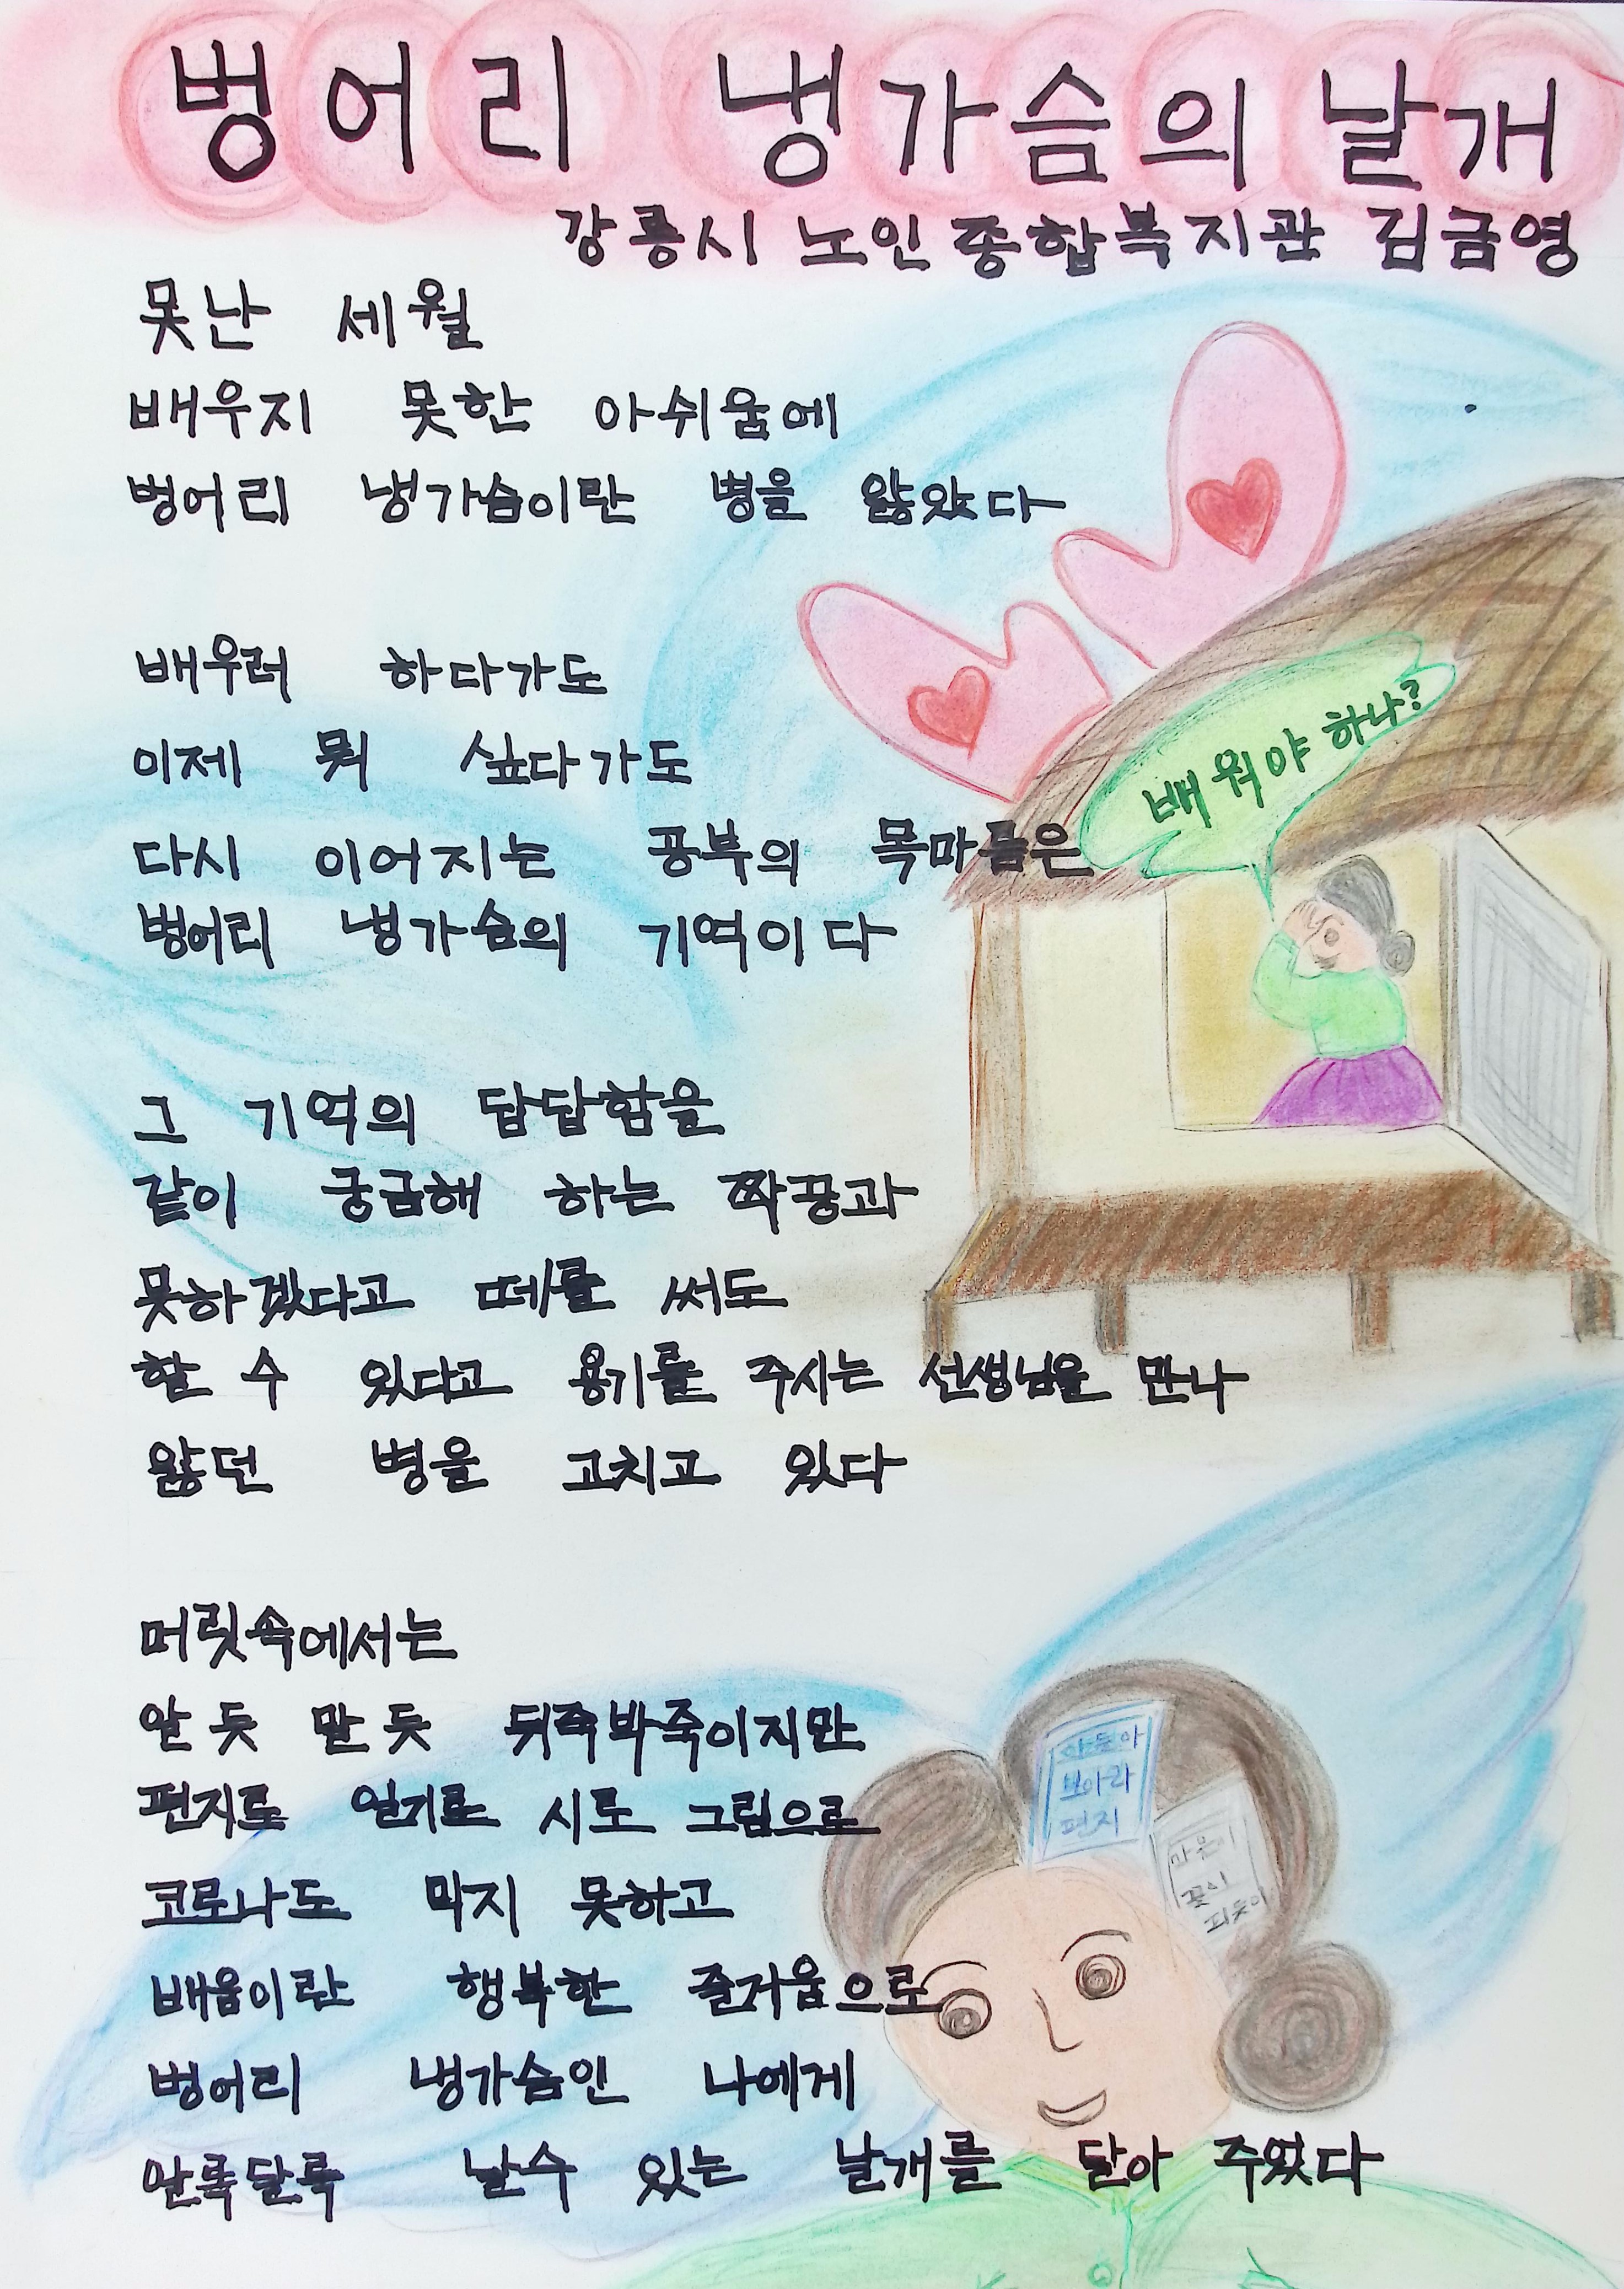 벙어리 냉가슴의 날개
강릉시 노인종합복지관 김금영
못난 세월
배우지 못한 아쉬움에
벙어리 냉가슴이란 병을 앓았다
배우러 하다가도
이제 뭐 싶다가도
다시 이어지는 공부의 목마름은
벙어리 냉가슴의 기억이다
배워야 하나?
그 기억의 답답함을
같이 궁금해 하는 짝꿍과
못하겠다고 떼를 써도
할 수 있다고 용기를 주시는 선생님을 만나
앓던 병을 고치고 있다
머릿속에서는
알 듯 말 듯 뒤죽박죽이지만
편지로 일기로 시로 그림으로
코로나도 막지 못하고
배움이란 행복한 즐거움으로
벙어리 냉가슴인 나에게
알록달록 날수 있는 날개를 달아 주었다
아들아
보아라
편지
마음에
꽃이
피듯이